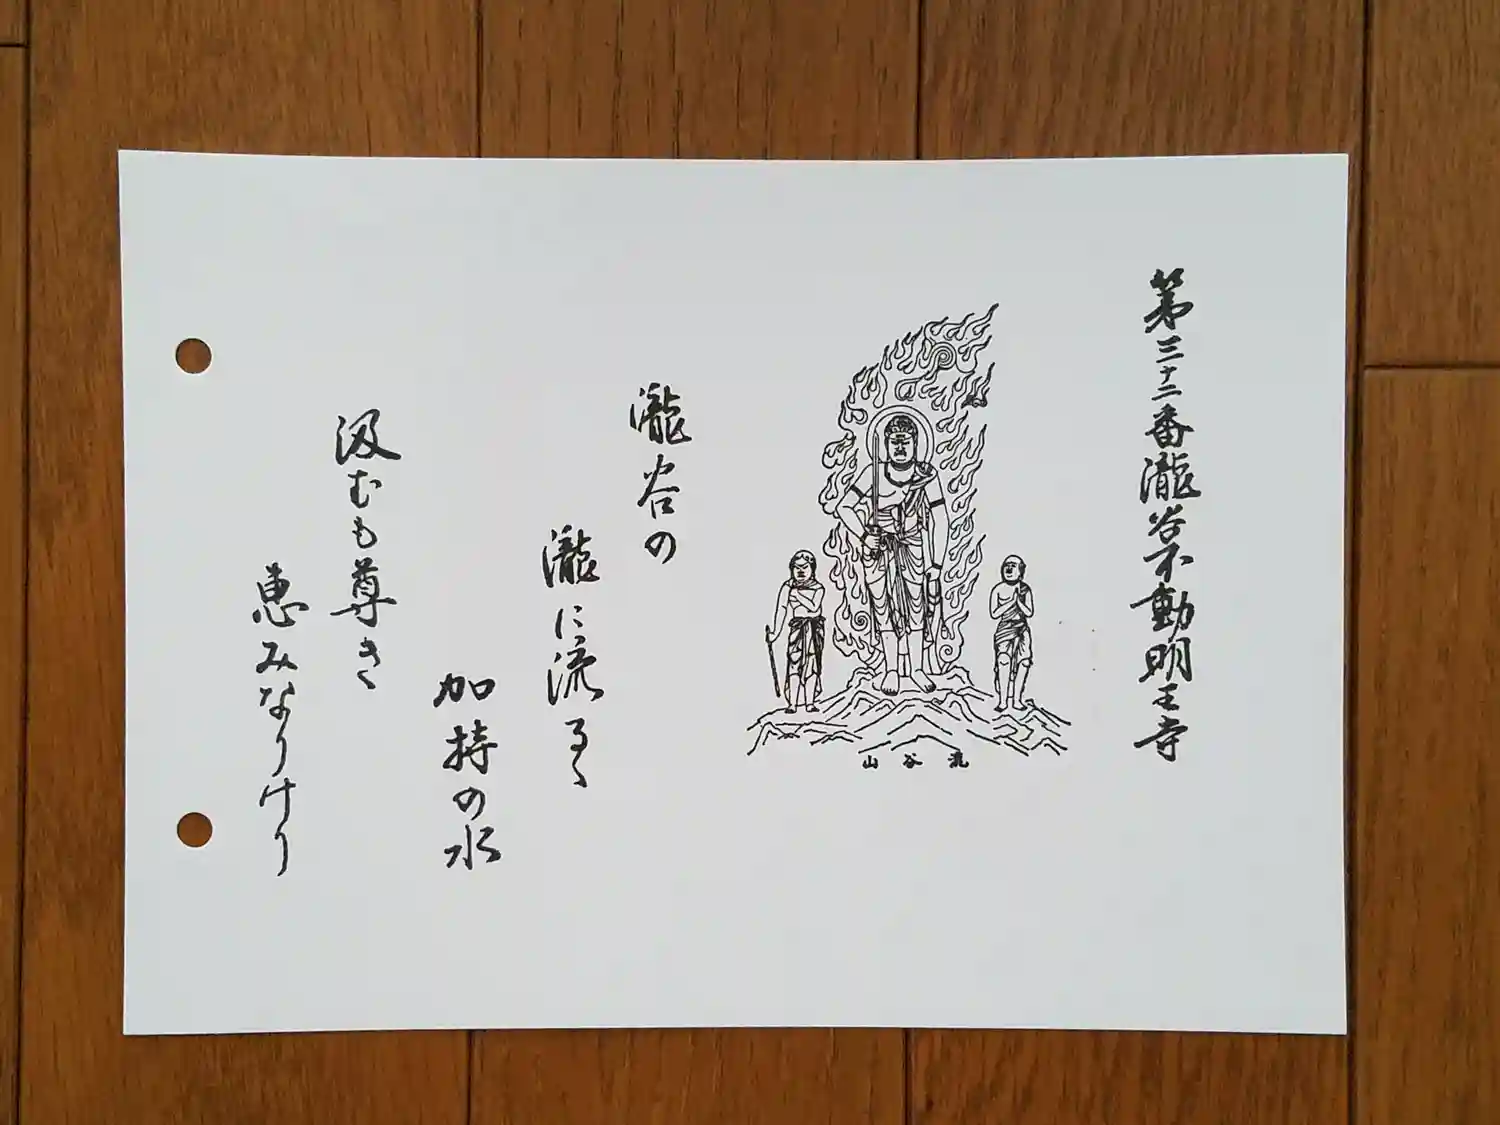 第三十二番瀧谷不動明王寺
瀧谷山
瀧谷の
瀧に流るゝ
加持の水
汲むも尊き
恵みなりけり